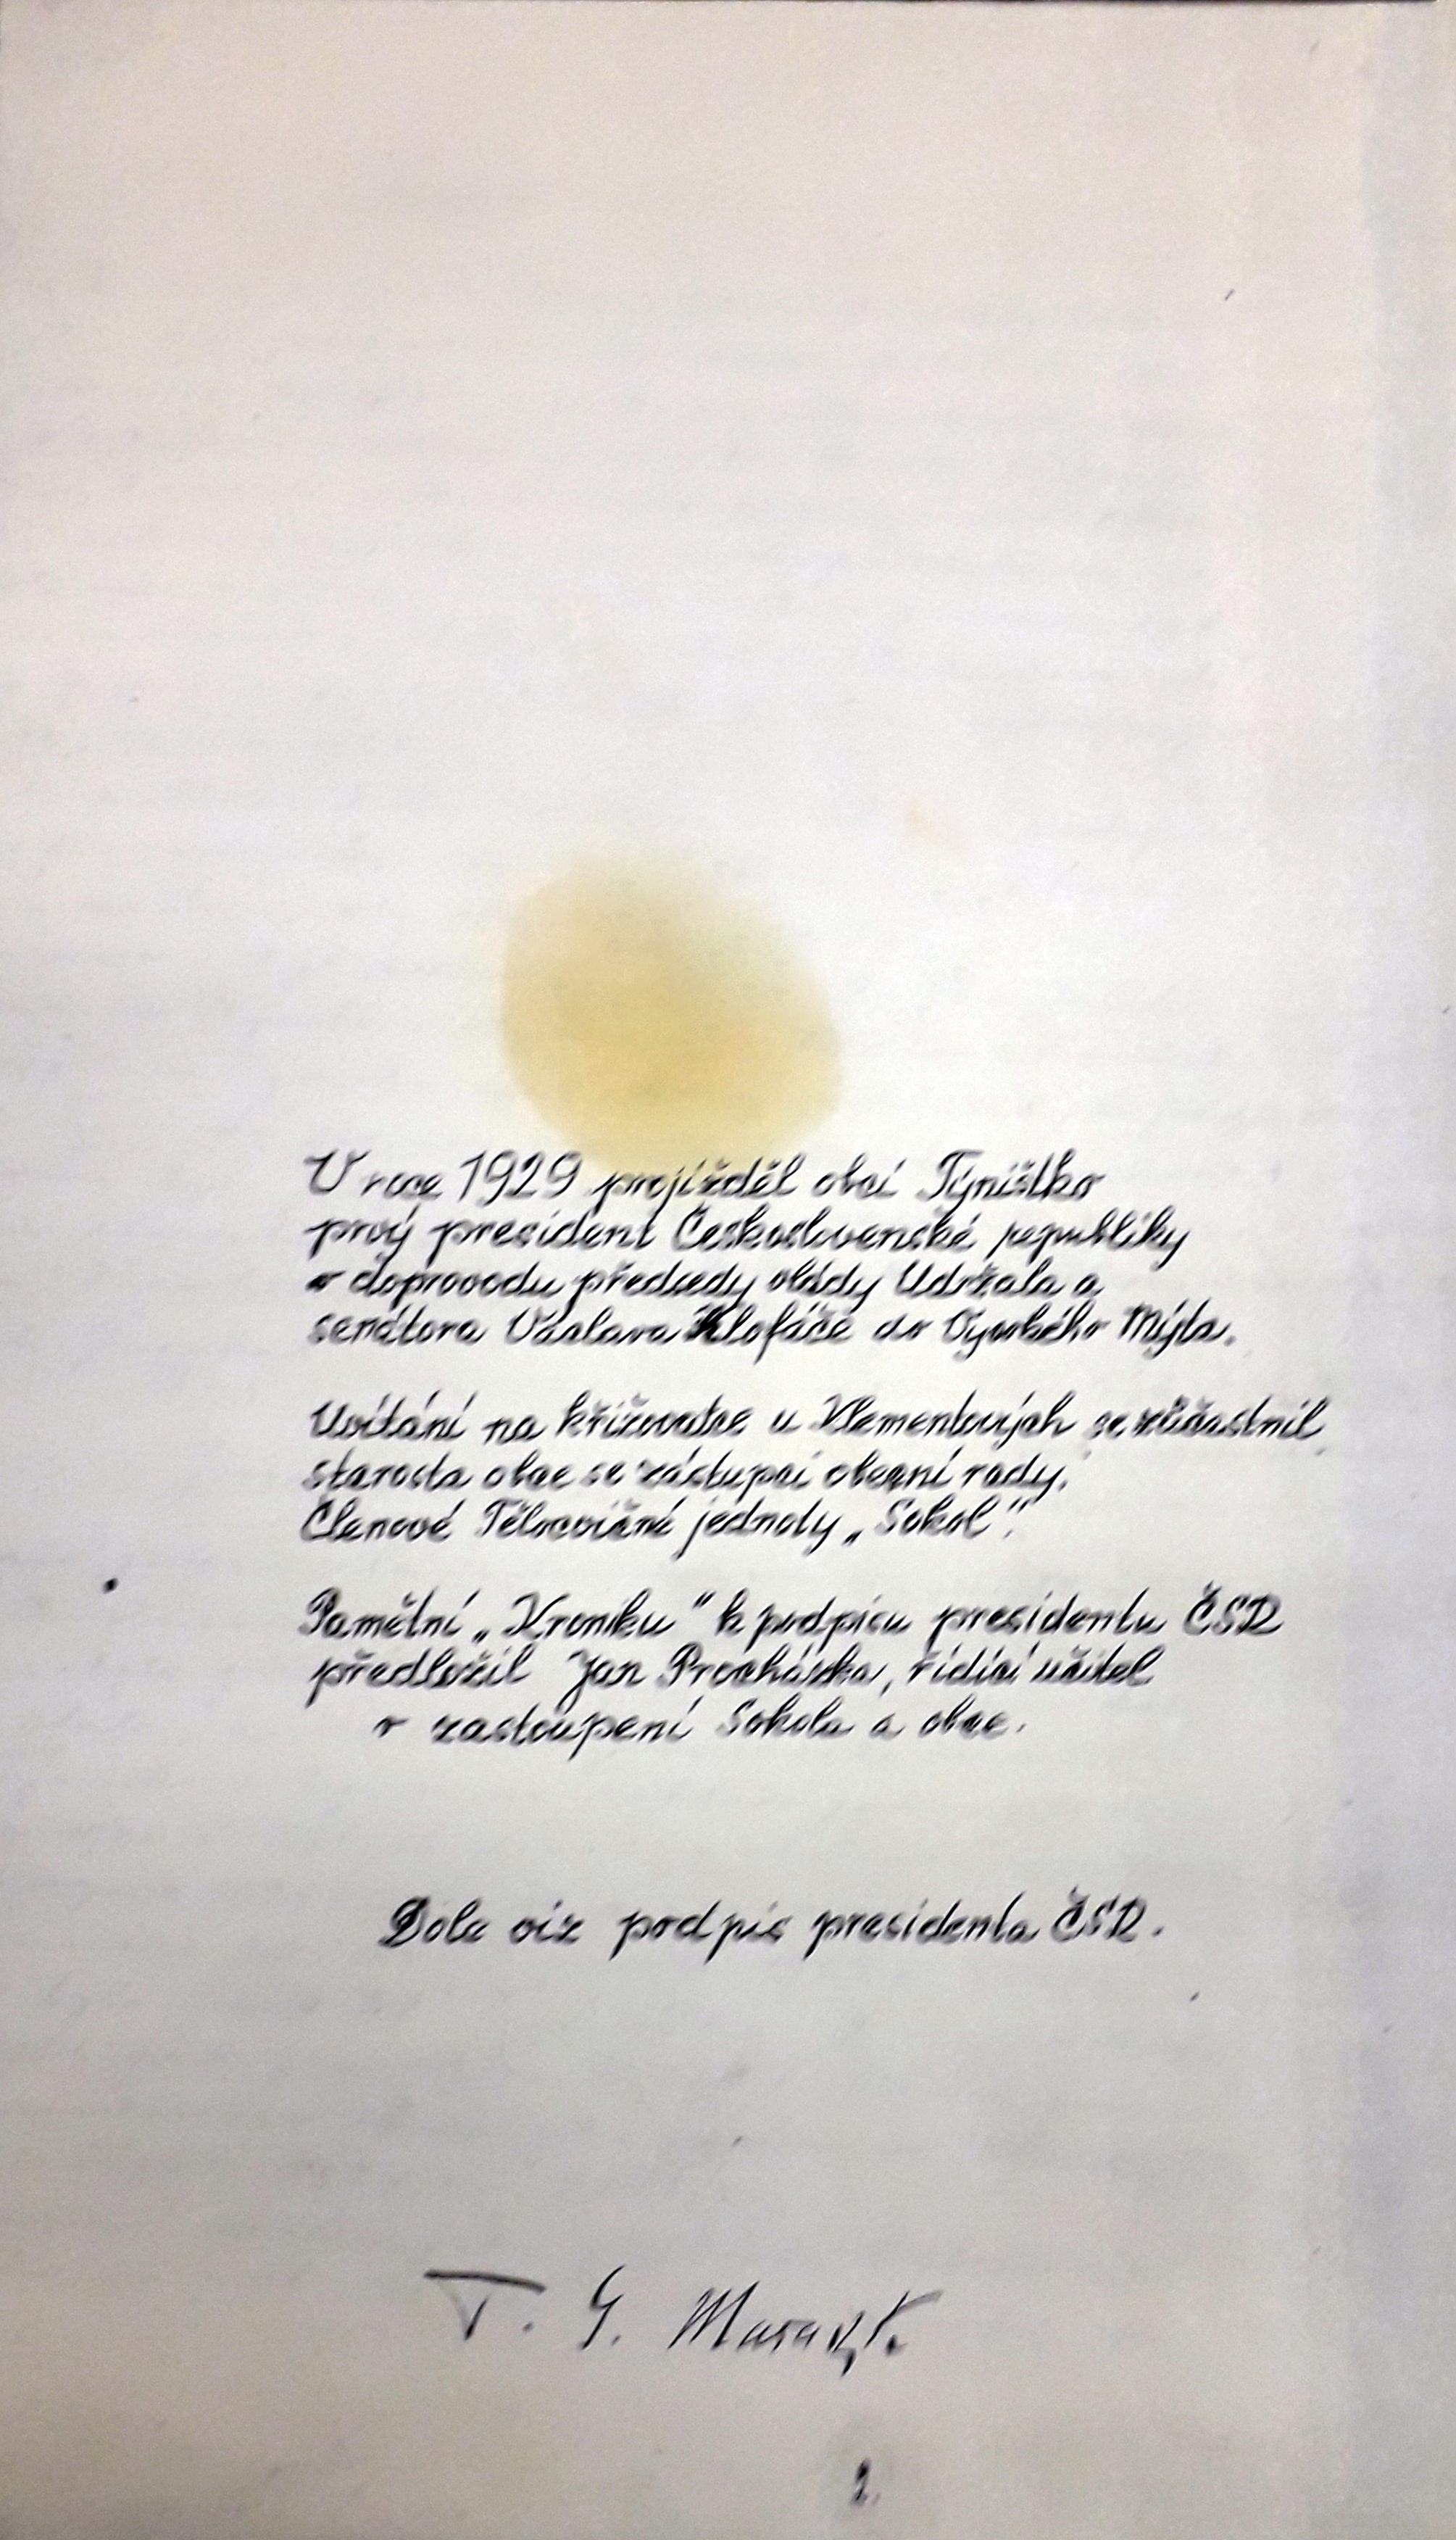 V roce 1929 projížděl obcí Týništko
prvý president Československé republiky
v doprovodu předsedy vlády Udržala a
senátora Václava Klofáče do Vysokého Mýta.
Uvítání na křižovatce u Klementových se zúčastnil
starosta obce se zástupci obecní rady.
Členové Tělocvičné jednoty „Sokol“.
Pamětní „Kroniku“ k podpisu presidentu ČSR
předložil Jan Procházka, řídící učitel
v zastoupení Sokola a obce.
Dole viz podpis presidenta ČSR.
T. G. Masaryk.